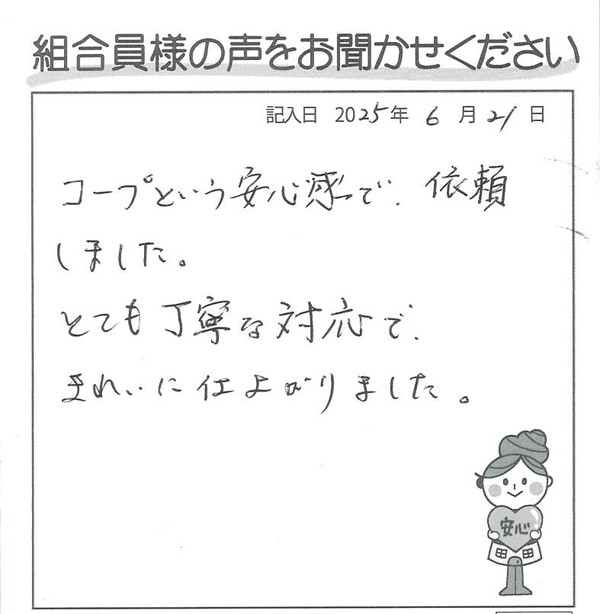 組合員様の声をお聞かせください
記入日 2025年 6月 21日
コープという安心感で、依頼
しました。
とても丁寧な対応で、
きれいに仕上がりました。
安心